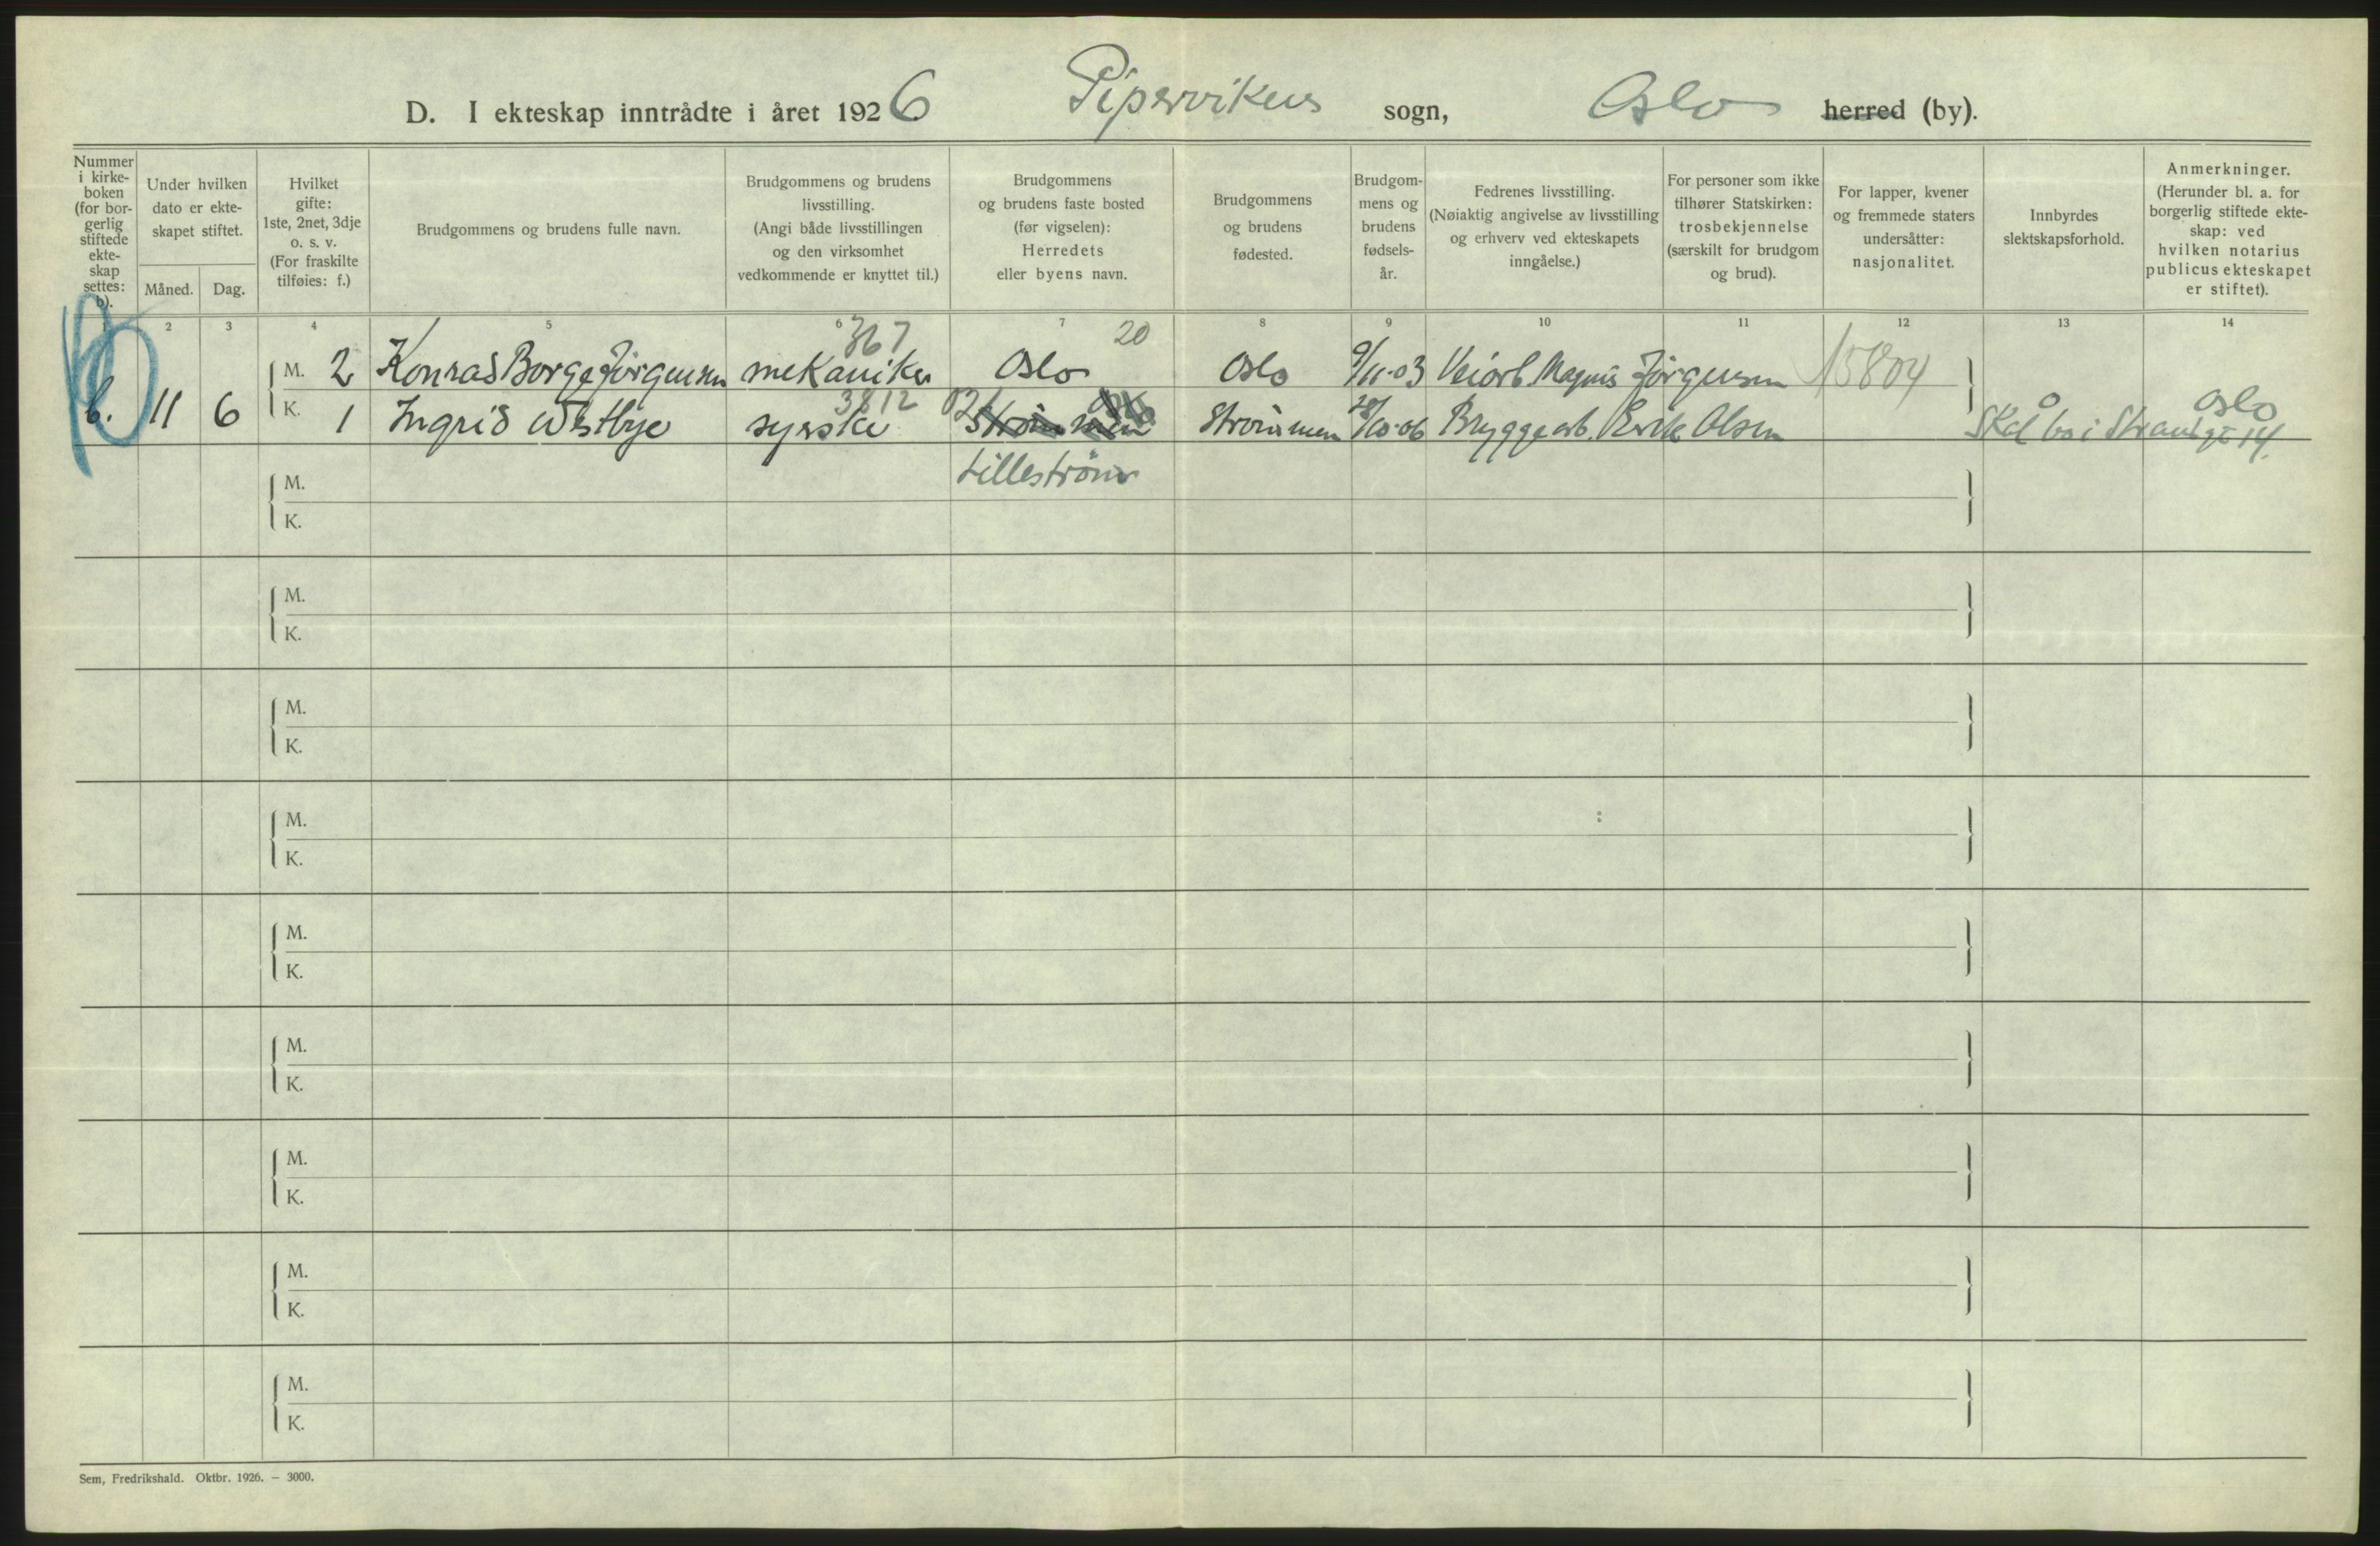 D. I ekteskap inntrådte i året 1926 Pipervikens sogn, Oslo herred (by).
Nummer i kirke-boken (for bor-gerlig stiftede ekte-skap settes: b).
Under hvilken dato er ekte-skapet stiftet.
Måned. Dag.
Hvilket gifte: 1ste, 2net, 3dje o. s. v. (For fraskilte tilføies: f.)
Brudgommens og brudens fulle navn.
Brudgommens og brudens livsstilling. (Angi både livsstillingen og den virksomhet vedkommende er knyttet til.)
Brudgommens og brudens faste bosted (før vigselen): Herredets eller byens navn.
Brudgommens og brudens fødested.
Brudgom-mens og brudens fødsels-år.
Fedrenes livsstilling. (Nøiaktig angivelse av livsstilling og erhverv ved ekteskapets inngåelse.)
For personer som ikke tilhører Statskirken: trosbekjennelse (særskilt for brudgom og brud).
For lapper, kvener og fremmede staters undersåtter: nasjonalitet.
Innbyrdes slektskapsforhold.
Anmerkninger. (Herunder bl. a. for borgerlig stiftede ekte-skap: ved hvilken notarius publicus ekteskapet er stiftet).
1 2 3 4 5 6 7 8 9 10 11 12 13 14
367 20
M. 2 Konrad Borge Jörgensen mekaniker Oslo Oslo 9/11-03 Veiarb. Magnus Jörgensen 15804
3812
Oslo
b. 11 6 K. 1 Ingrid Westbye syerske Strömmen Strömmen 28/10-06 Bryggearb. Erik Olsen Skal bo i Strandgt 14.
Lilleström
M.
K.
M.
K.
M.
K.
M.
K.
M.
K.
M.
K.
M.
K.
M.
K.
M.
K.
Sem, Fredrikshald. Oktbr. 1926. — 3000.